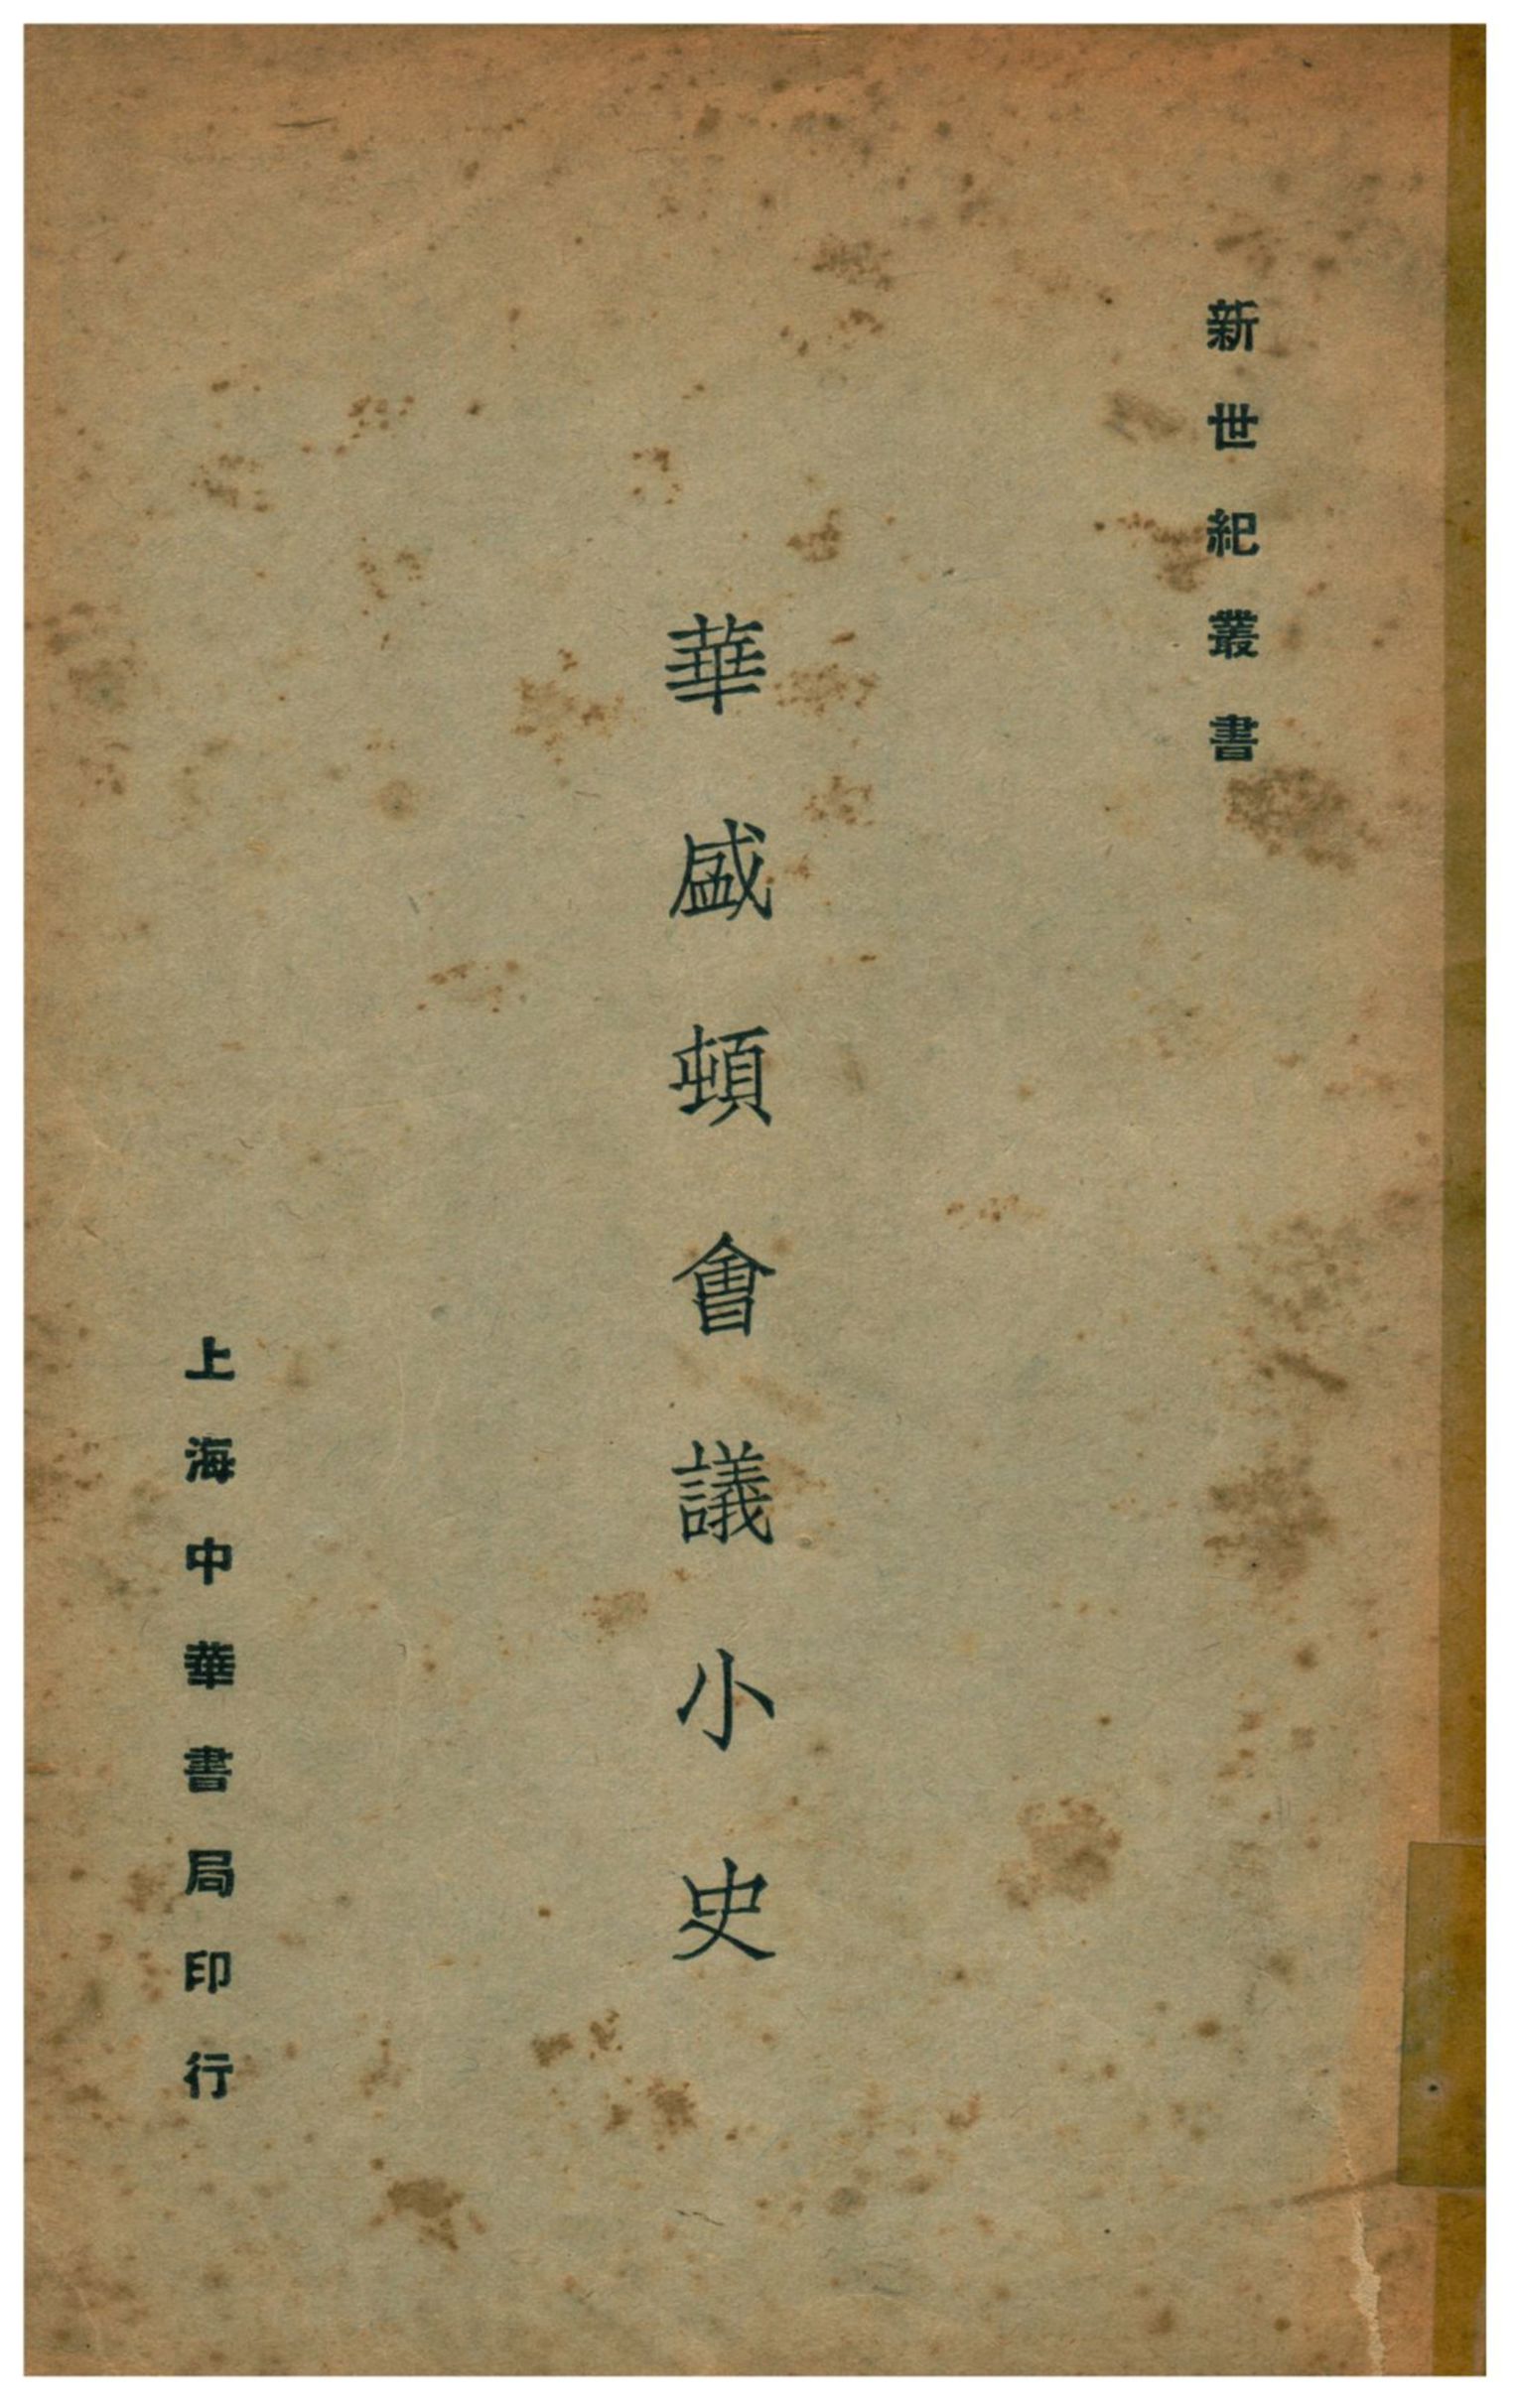 新世紀叢書
華盛頓會議小史
上海中華書局印行